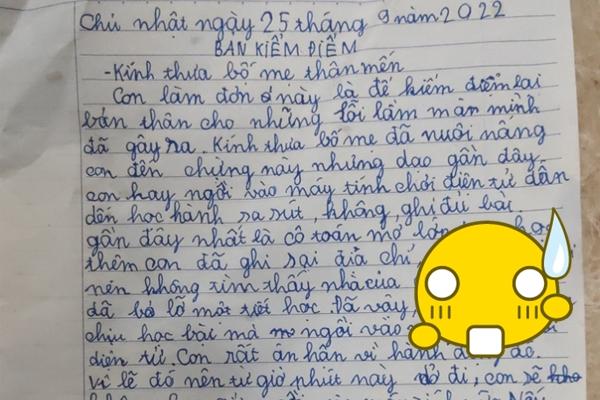 Chủ nhật ngày 25 tháng 9 năm 2022
BẢN KIỂM ĐIỂM
-Kính thưa bố mẹ thân mến
Con làm đơn này là để kiểm điểm lại
bản thân cho những lỗi lầm mà mình
đã gây ra. Kính thưa bố mẹ đã nuôi nấng
con đến chừng này nhưng dạo gần đây
con hay ngồi vào máy tính chơi điện tử dẫn
đến học hành sa sút, không, ghi đủ bài
gần đây nhất là cô toán mở lớp học
thêm con đã ghi sai địa chỉ
nên không tìm thấy nhà của
đã bỏ lỡ một tiết học. Đã vậy,
chịu học bài mà ngồi vào
điện tử. Con rất ân hận vì hành
vì lẽ đó nên từ giờ phút này trở đi, con sẽ